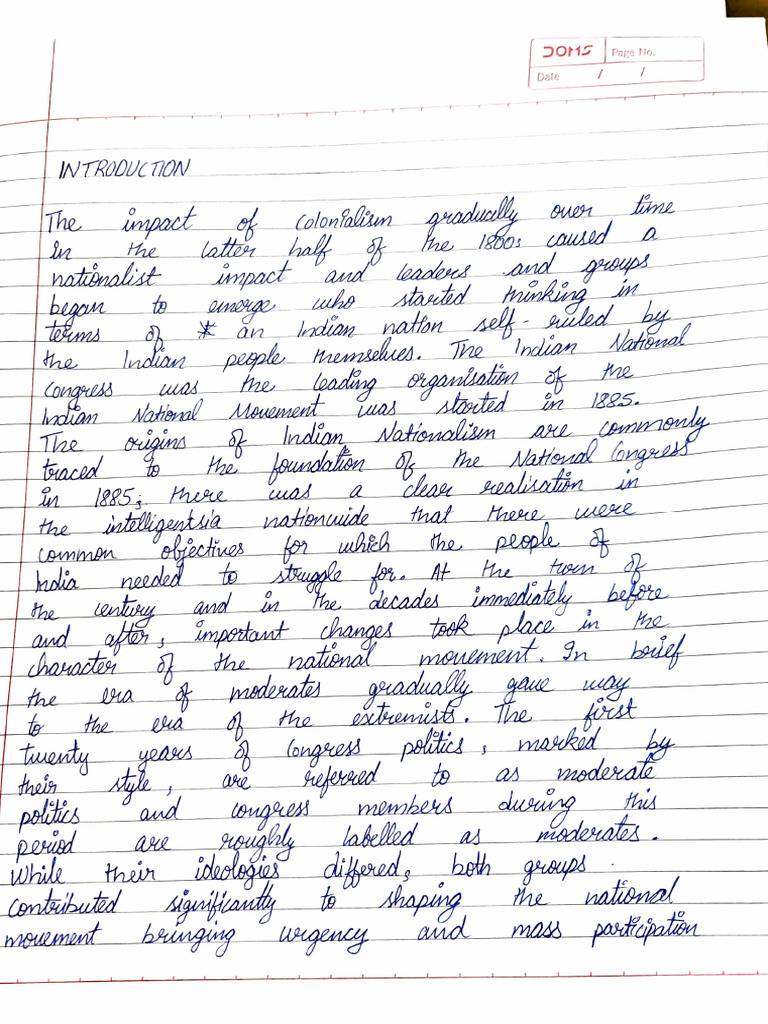 DOMS Page No.
Date / /
INTRODUCTION
The impact of colonialism gradually over time
in the latter half of the 1800s caused a
nationalist impact and leaders and groups
began to emerge who started thinking in
terms of * an Indian nation self-ruled by
the Indian people themselves. The Indian National
Congress was the leading organisation of the
Indian National Movement was started in 1885.
The origins of Indian Nationalism are commonly
traced to the foundation of the National Congress
in 1885; there was a clear realisation in
the intelligentsia nationwide that there were
common objectives for which the people of
India needed to struggle for. At the turn of
the century and in the decades immediately before
and after, important changes took place in the
character of the national movement. In brief
the era of moderates gradually gave way
to the era of the extremists. The first
twenty years of Congress politics, marked by
their style, are referred to as moderate
politics and congress members during this
period are roughly labelled as moderates.
While their ideologies differed, both groups
contributed significantly to shaping the national
movement bringing urgency and mass participation